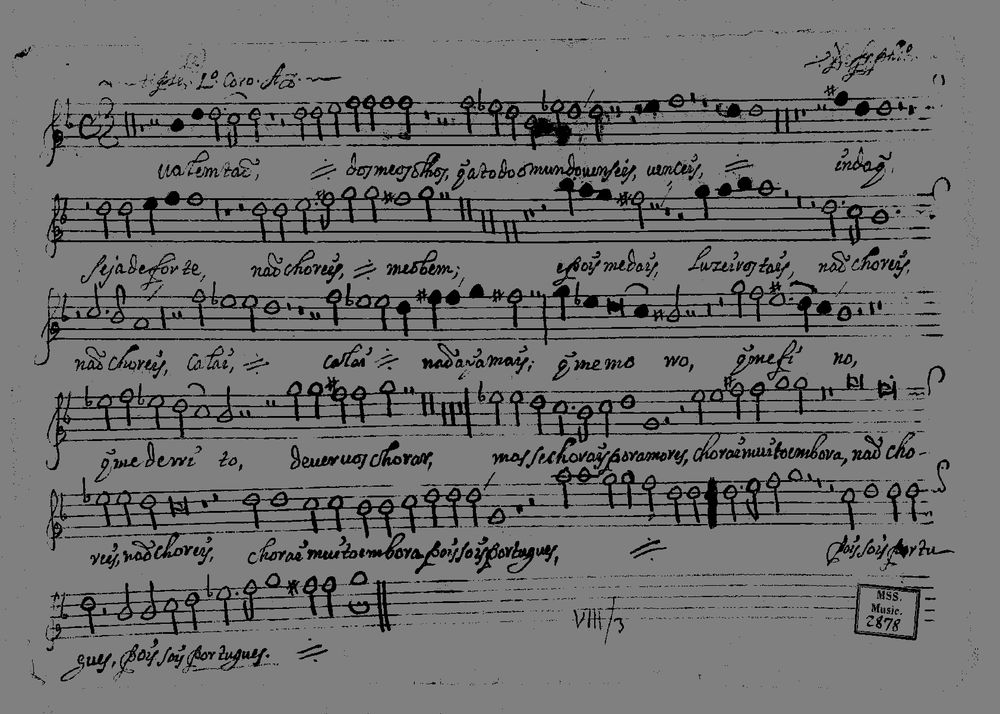 Lº Coro. Aº
ualem taõ, dos meos olhos, q̃ a todo o mundo uenseis, uenceis, inda q̃
seja de forte, naõ choreis, meo bem; e pois me dais, Luzeiros tais, naõ choreis,
naõ choreis, Calai, Calai naõ aya mais; q̃ me mo ro, q̃ me fi no,
q̃ me derri to, deueruos chorar, mas se chorais por amores, chorai muito embora, naõ cho-
reis, naõ choreis, chorai muito embora pois sois portugues, pois sois portu
gues, pois sois portugues.
VIII/3
MSS.
Music.
2878